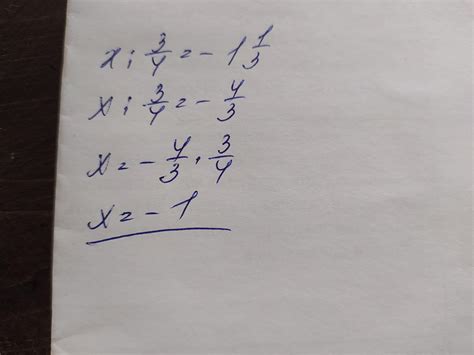 x : 3/4 = - 1 1/3
x : 3/4 = - 4/3
x = - 4/3 · 3/4
x = - 1